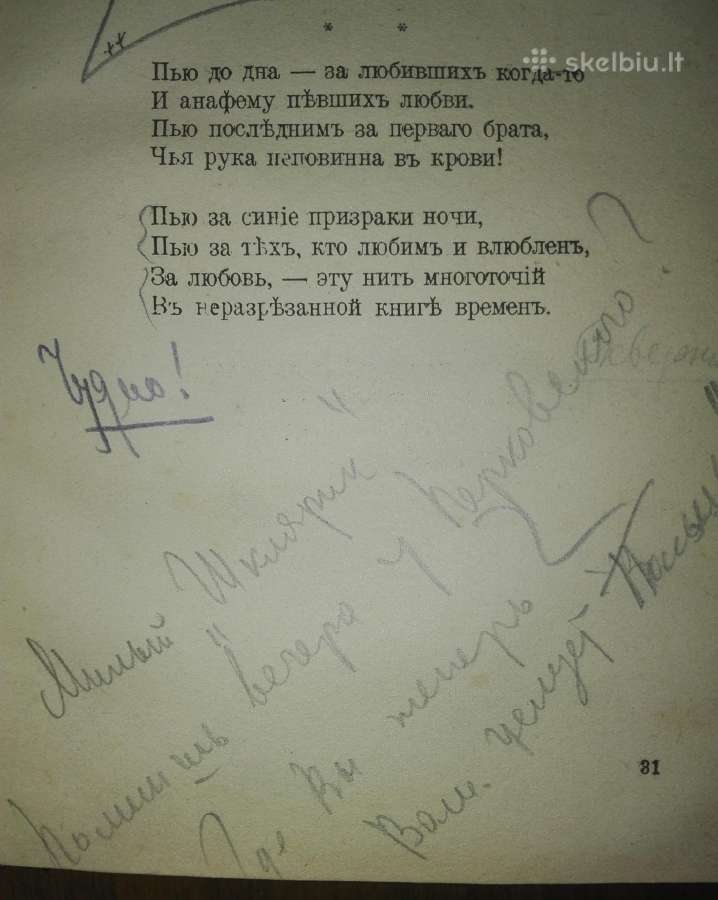 * *
skelbiu.lt
Пью до дна — за любившихъ когда-то
И анафему пѣвшихъ любви.
Пью послѣднимъ за перваго брата,
Чья рука неповинна въ крови!
Пью за синіе призраки ночи,
Пью за тѣхъ, кто любимъ и влюбленъ,
За любовь, — эту нить многоточій
Въ неразрѣзанной книгѣ временъ.
Чудно!
Милый
Помнишь вечера у
Где Вы теперь
целует
31